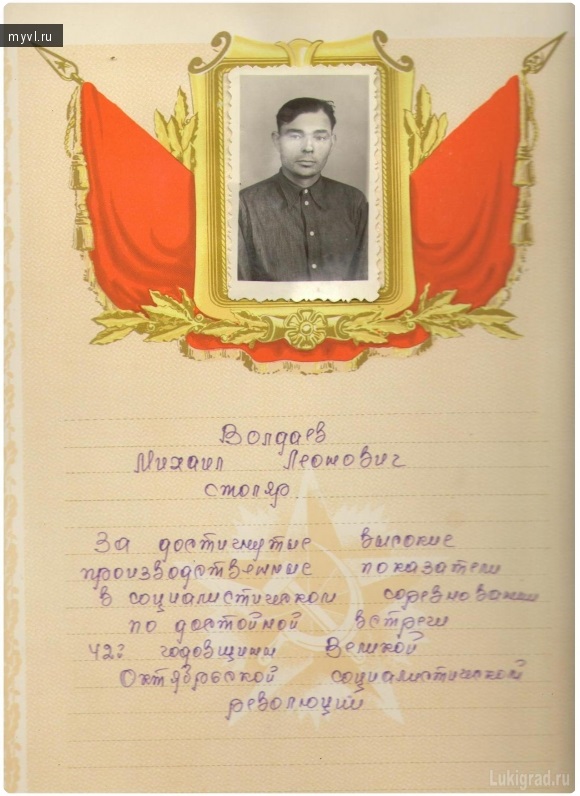 myvl.ru
Волдаев
Михаил Леонович
столяр
За достигнутые высокие
производственные показатели
в социалистическом соревновании
по достойной встречи
42й годовщини Великой
Октябрьской социалистической
революции
Lukigrad.ru